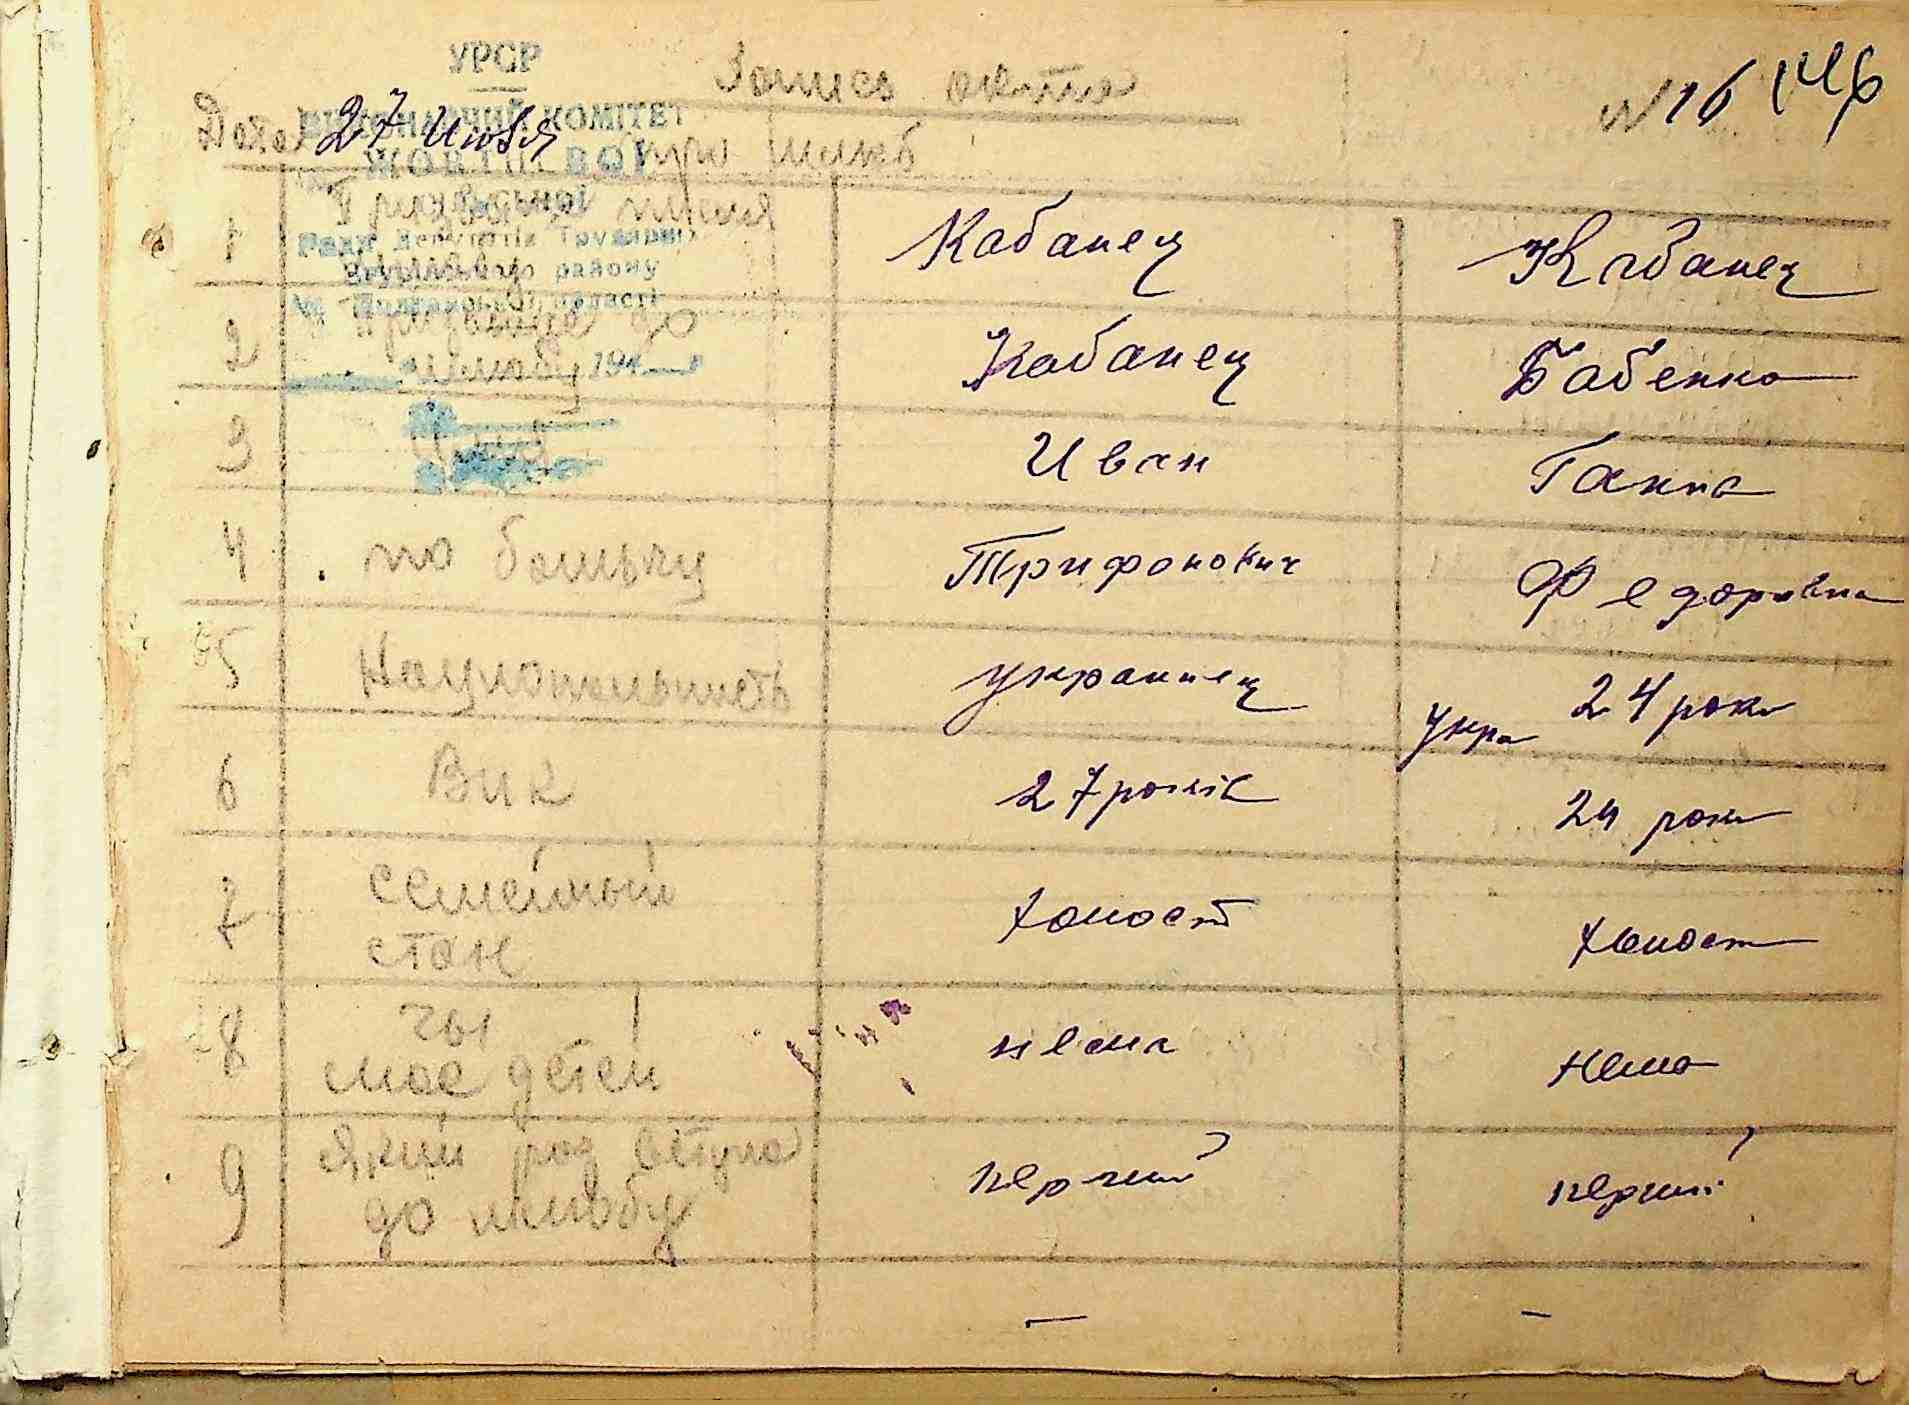 УРСР
Запись акта
№ 16 146
Дата 27 Июля
ВИКОНАВЧИЙ КОМІТЕТ
при шлюб
1 Призвище писля Кабанец Кабанец
Ради депутатів Трудящих
району
області
2 Призвище до Кабанец Бабенко
шлюбу 194
3 Иван Ганна
4 по батьку Трифонович Федоровна
5 Национальность украинец Укра 24 роки
6 Вик 27 років 24 роки
7 семейный холост холост
стан
8 чы нема нема
мае детей
9 Який раз вступа перший перший
до шлюбу
— —